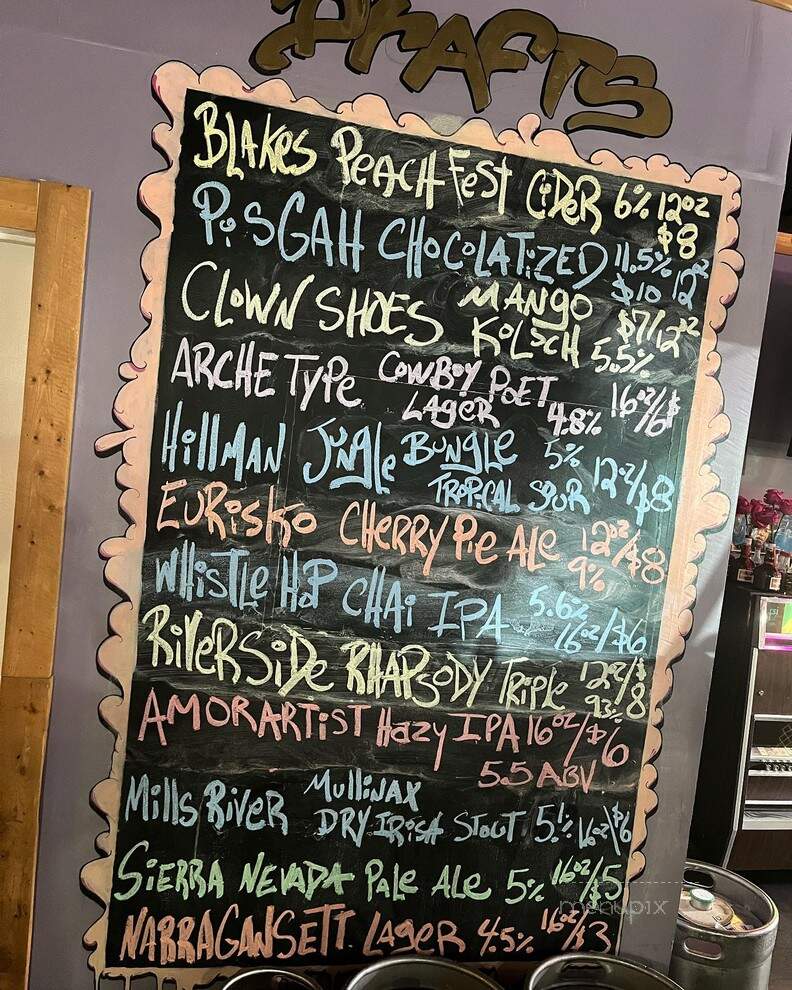 DRAFTS
BLAKES PEACH FEST CIDER 6% 12oz $8
PISGAH CHOCOLATIZED 11.5% $10 12oz
CLOWN SHOES MANGO KOLSCH $7/12oz 5.5%
ARCHETYPE COWBOY POET LAGER 4.8% 16oz/6$
HILLMAN JUNGLE BUNGLE TROPICAL SOUR 5% 12oz/$8
EURISKO CHERRY PIE ALE 12oz/$8 9%
WHISTLE HOP CHAI IPA 5.6% 16oz/$6
RIVERSIDE RHAPSODY TRIPLE 12oz/$8 9.3%
AMOR ARTIST HAZY IPA 16oz/$6 5.5 ABV
MILLS RIVER MULLINAX DRY IRISH STOUT 5% 16oz/$6
SIERRA NEVADA PALE ALE 5% 16oz/$5
NARRAGANSETT LAGER 4.5% 16oz/$3
menupix